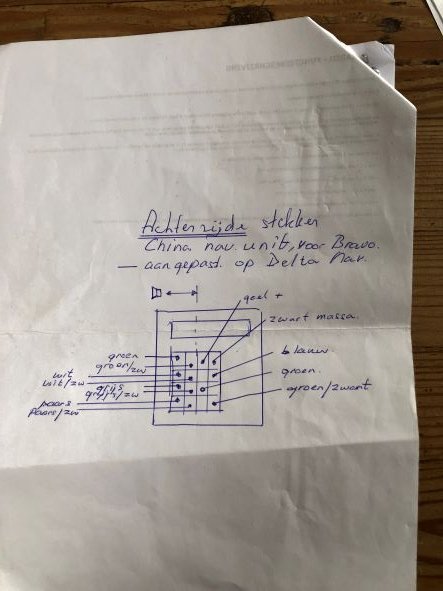 Achterzijde stekker
China nav. unit, voor Bravo.
— aangepast op Delta Nav.
geel +
zwart massa.
groen
groen/zw
wit
wit/zw
grijs
grijs/zw
paars
Paars/zw
blauw
groen.
groen/zwart